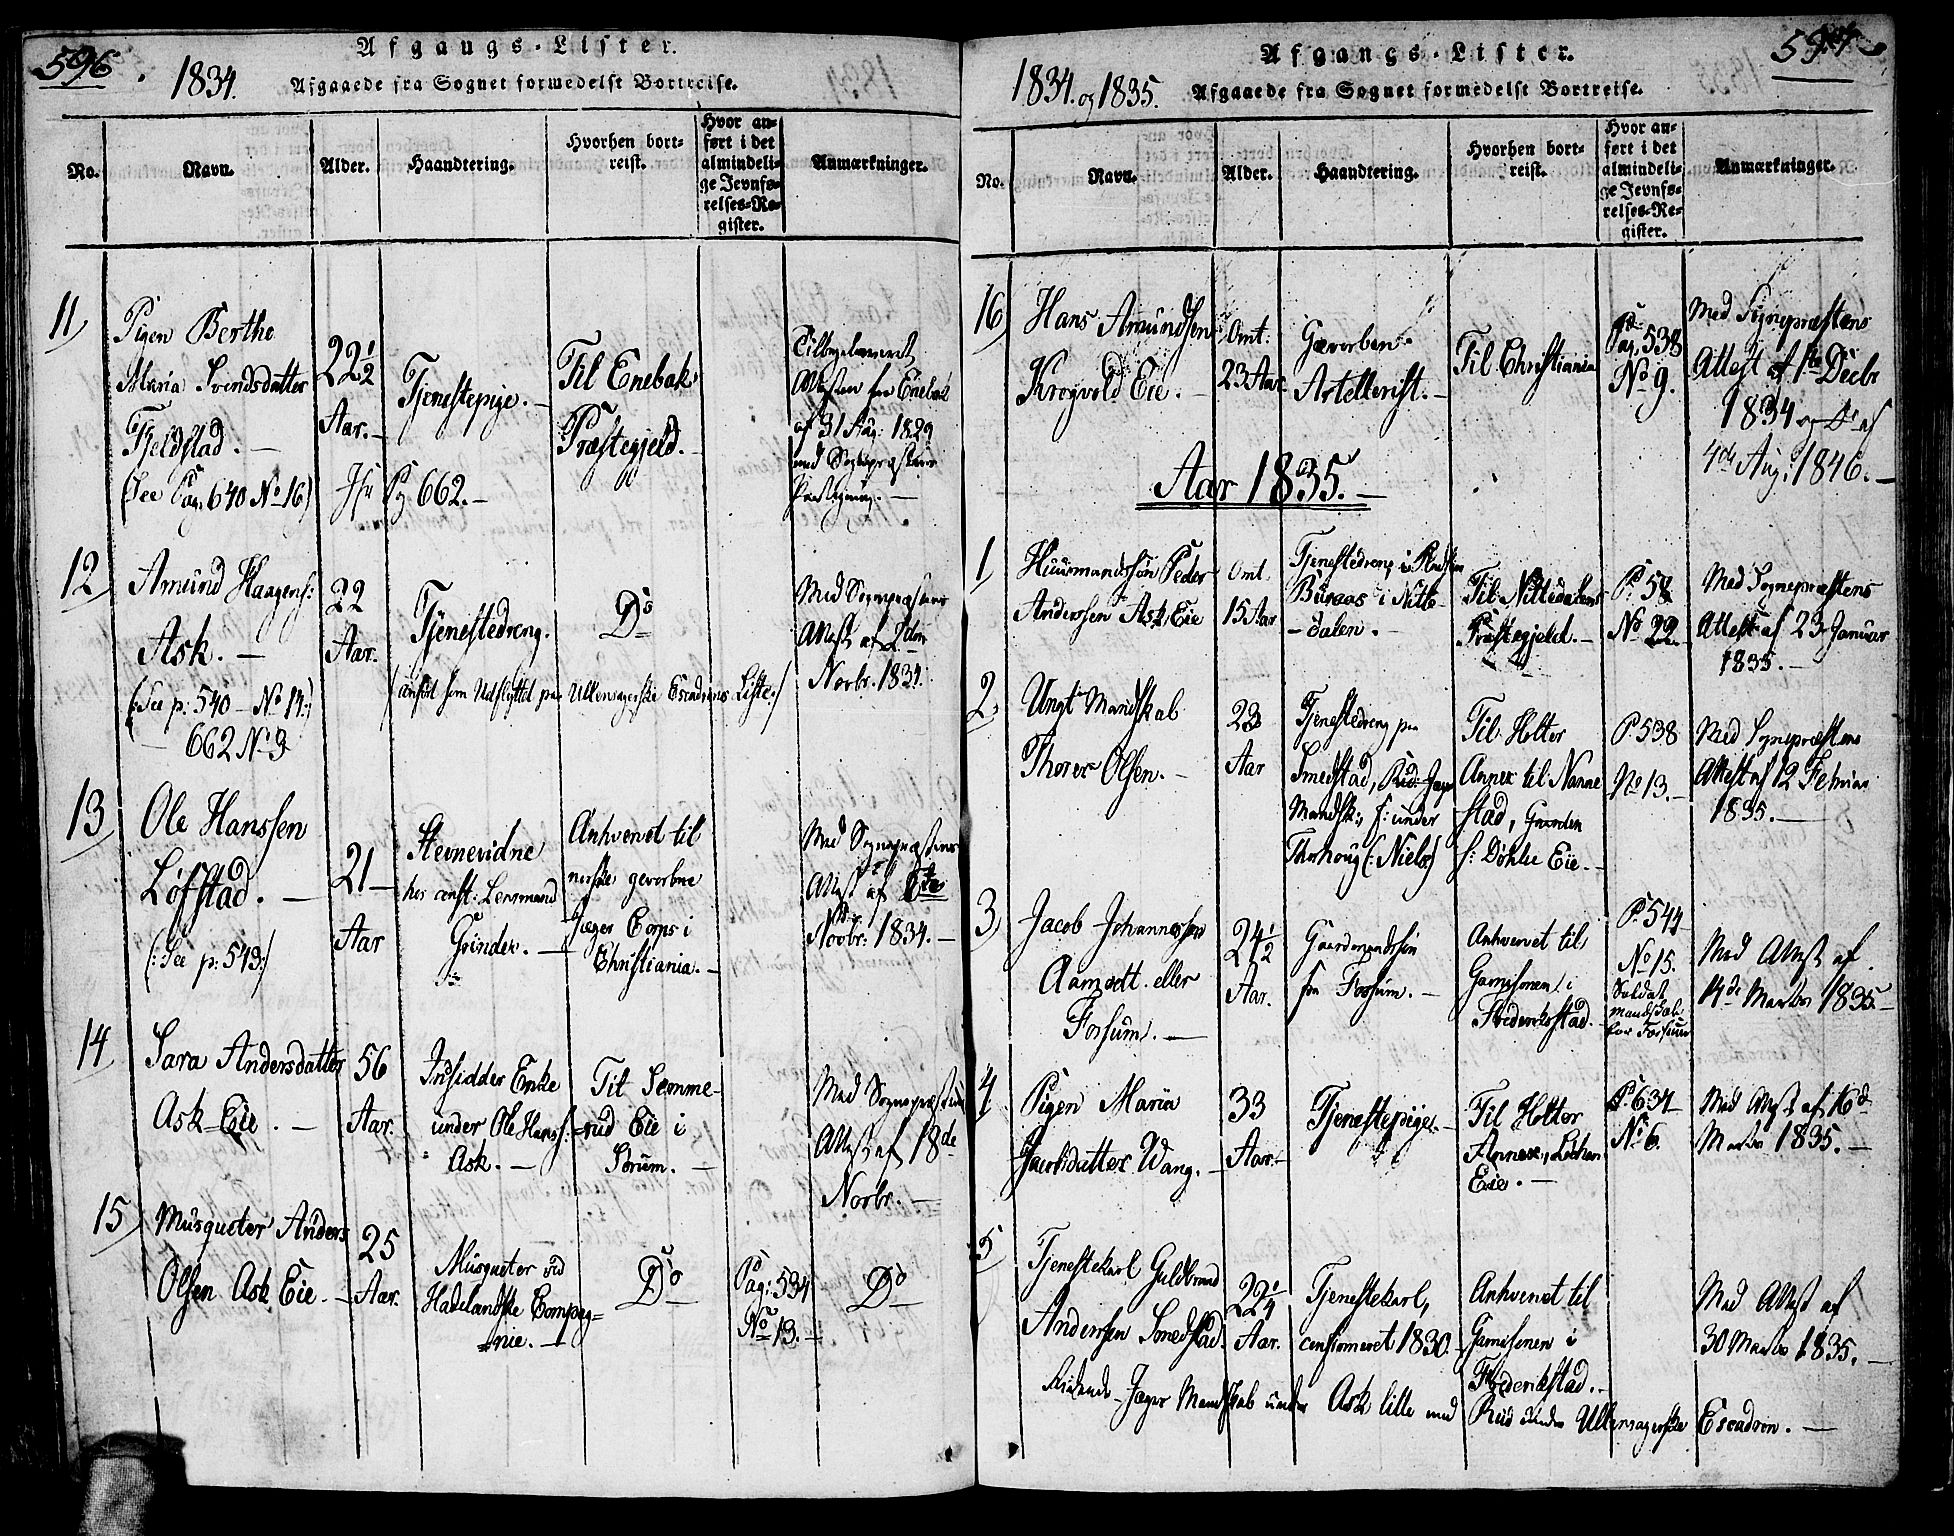 596.
Afgangs-Lister.
1834.
Afgaaede fra Sognet formedelst Bortreise.
No.
Navn.
Alder.
Haandtering.
Hvorhen bort-
reist.
Hvor an-
ført i det
almindeli-
ge Jevnfø-
relses-Re-
gister.
Anmærkninger.
11
Pigen Berthe
Maria Svendsdatter
Fjeldstad. -
(See Pag. 640 No 16)
22 1/2
Aar. -
Tjenestepige. -
Pg 662. -
Til Enebak
Præstegjeld. -
Attesten fra Enebak
af 31 Aug: 1829
med Sognepræstens
12
Amund Haagens:
Ask. -
(:See p: 540 - No 14:)
662 No 9
22
Aar.
Tjenestedreng.
Do
Med Sognepræstens
Attest af 2den
Novbr. 1834.
(anført som Udflyttet paa Ullensagerske Esqvadrons Liste:/)
13
Ole Hanssen
Løfstad. -
(:See p: 549:)
21 -
Aar
Stevnevidne
hos const: Lensmand
Grinder. -
Anhvervet til
norske gevorbne
Jæger Corps i
Christiania. -
Med Sognepræstens
Attest af
Novbr: 1834. -
14
Sara Andersdatter
Ask Eie. -
56
Aar.
Indsidder Enke
under Ole Hanss:
Ask. -
Til Semme-
rud Eie i
Sørum. -
Med Sognepræstens
Attest af 18de
Novbr. -
15
Musqueter Anders
Olsen Ask Eie. -
25
Aar.
Musqueter ved
Hadelandske Compag-
nie. -
Do
Pag: 534
No 13. -
Do
597
Afgangs-Lister.
1834. og 1835.
Afgaaede fra Sognet formedelst Bortreise.
No.
Navn.
Alder.
Haandtering.
Hvorhen bort-
reist.
Hvor an-
ført i det
almindeli-
ge Jevnfø-
relses-Re-
gister.
Anmærkninger.
16
Hans Amundsen
Krogvold Eie. -
Omt:
23 Aar.
Gevorben
Artellerist. -
Til Christiania
Pag. 538
No 9.
Med Sognepræstens
Attest af 1ste Decbr
1834 og Do af
4de Aug: 1846. -
Aar 1835. -
1
Huusmandssøn Peder
Anderssen Ask Eie
Omt.
15 Aar
Tjenestedreng i
Buraas i Nitte-
-dalen. -
Til Nittedalens
Præstegjeld. -
P. 58
No 22. -
Med Sognepræstens
Attest af 23 Januar
1835. -
2
Ungt Mandskab
Thorer Olsen. -
23
Aar
Tjenestedreng paa
Smedstad, Rid: Jæger
Mandsk:, f: under
Thorhoug (:Niels:)
Til Holter
Annex til Nanne
stad,
f: Døhlie Eie. -
P. 538
No 13. -
Med Sognepræstens
Attest af 12 Februar
1835. -
3
Jacob Johannessen
Aamodt eller
Forsum. -
24 1/2
Aar.
Gaardmandssøn
fra Forsum. -
Anhvervet til
Garnisonen i
Frederikstad. -
P. 544
No 15.
Soldat
mandskab
for Forsum
Med Attest af
14de Martss 1835. -
4
Pigen Maria
Jacobsdatter Wang. -
33
Aar. -
Tjenestepige. -
Til Holter
Annex,
Eie. -
P. 634
No 6.
Med Attest af 16de
Martss 1835. -
5
Tjenestekarl Guldbrand
Anderssen Smedstad.
22 1/4
Aar.
Tjenestekarl,
confirmeret 1830. -
Anhvervet til
Garnisonen i
Frederikstad. -
Med Attest af
30 Martss 1835. -
Ridende Jæger Mandskab under Ask lille med Rud under Ullensagerske Esqvadron. -